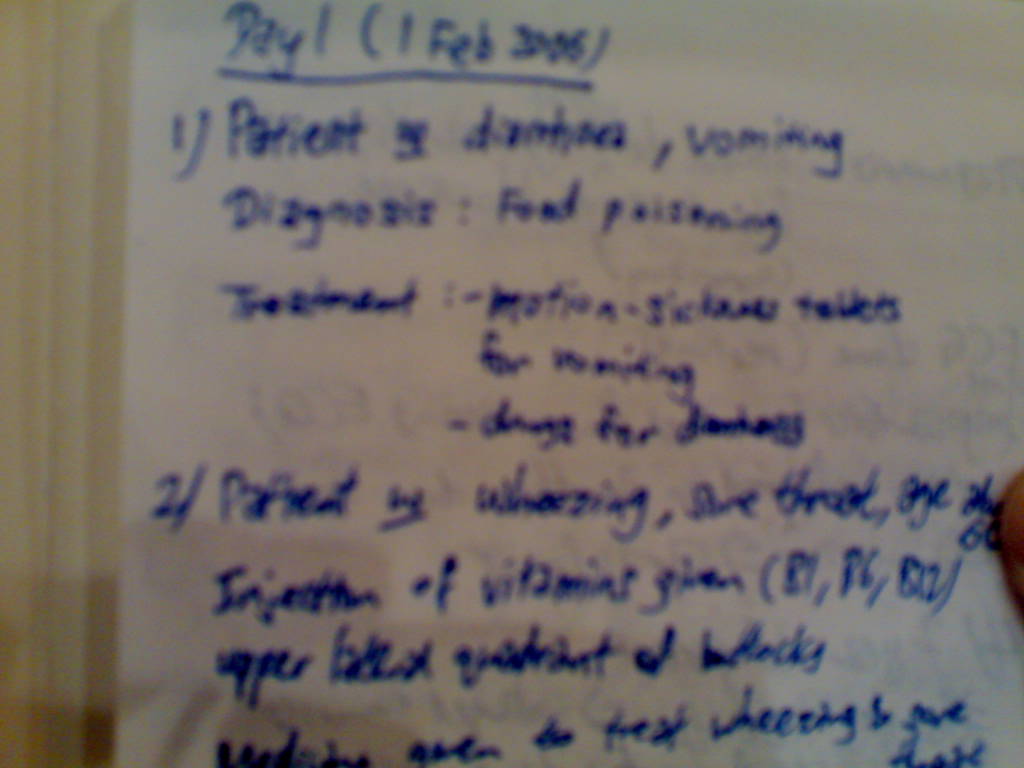 Day 1 (1 Feb 2006)
1) Patient w diarrhoea, vomiting
Diagnosis : Food poisoning
Treatment : - motion-sickness tablets
for vomiting
- drugs for diarrhoea
2) Patient w wheezing, sore throat, age
60
Injection of vitamins given (B1, B6, B12)
upper lateral quadrant of buttocks
Medicine given to treat wheezing & sore
throat